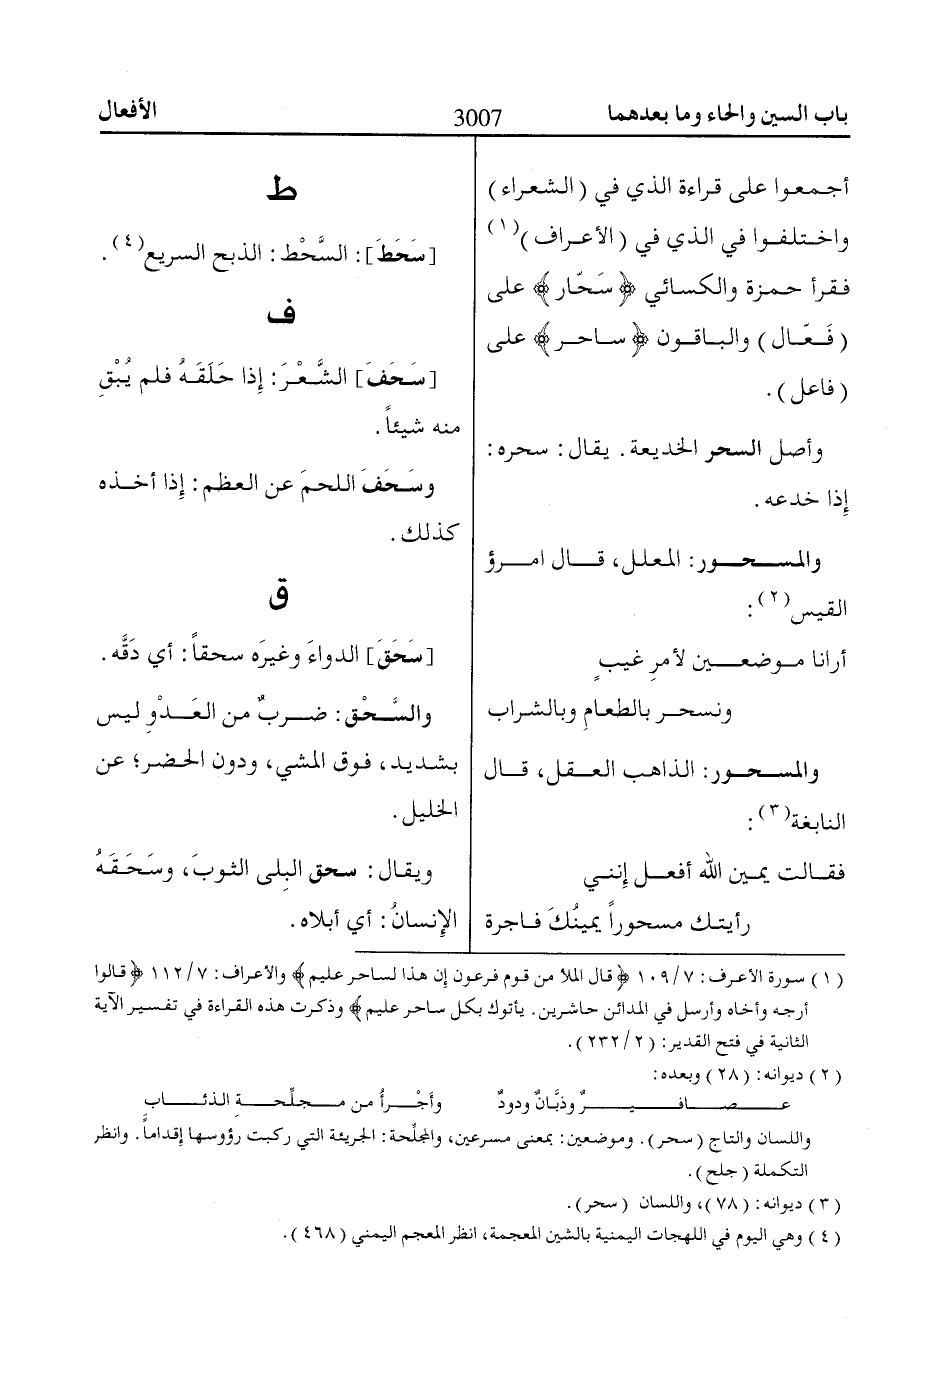 باب السين والحاء وما بعدهما
3007
الأفعال
أجمعوا على قراءة الذي في (الشعراء)
واختلفوا في الذي في (الأعراف)(١)
فقرأ حمزة والكسائي ﴿سَحّار﴾ على
(فَعّال) والباقون ﴿ساحر﴾ على
(فاعل).
وأصل السحر الخديعة. يقال: سحره:
إذا خدعه.
والمسحور: المعلل، قال امرؤ
القيس(٢):
أرانا موضعين لأمرِ غيبٍ
ونسحر بالطعامِ وبالشراب
والمسحور: الذاهب العقل، قال
النابغة(٣):
فقالت يمين الله أفعل إنني
رأيتك مسحوراً يمينُكَ فاجرة
ط
[سَحَطَ]: السَّحْط: الذبح السريع(٤).
ف
[سَحَفَ] الشَّعْرَ: إذا حَلَقَهُ فلم يُبْقِ
منه شيئاً.
وسَحَفَ اللحمَ عن العظم: إذا أخذه
كذلك.
ق
[سَحَقَ] الدواءَ وغيرَه سحقاً: أي دَقَّه.
والسَّحْق: ضربٌ من العَدْوِ ليس
بشديد، فوق المشي، ودون الحضر؛ عن
الخليل.
ويقال: سحق البلى الثوبَ، وسَحَقَهُ
الإنسانُ: أي أبلاه.
(١) سورة الأعرف: ٧/ ١٠٩ ﴿قال الملأ من قوم فرعون إن هذا لساحر عليم﴾ والأعراف: ٧/ ١١٢ ﴿قالوا
أرجه وأخاه وأرسل في المدائن حاشرين. يأتوك بكل ساحر عليم﴾ وذكرت هذه القراءة في تفسير الآية
الثانية في فتح القدير: (٢/ ٢٣٢).
(٢) ديوانه: (٢٨) وبعده:
عصافيرٌ وذبَّانٌ ودودٌ وأجْرأُ من مجلّحة الذئاب
واللسان والتاج (سحر). وموضعين: بمعنى مسرعين، والمجلّحة: الجريئة التي ركبت رؤوسها إقداماً. وانظر
التكملة (جلح).
(٣) ديوانه: (٧٨)، واللسان (سحر).
(٤) وهي اليوم في اللهجات اليمنية بالشين المعجمة، انظر المعجم اليمني (٤٦٨).